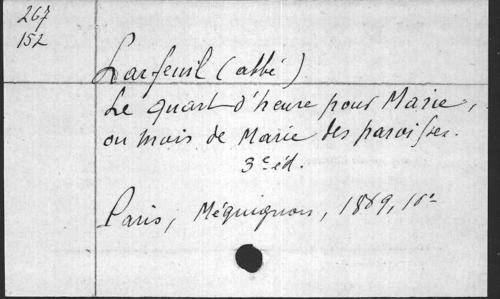 267
152
Larfeuil (abbé)
Le quart d'heure pour Marie,
ou mois de Marie des paroisses.
3e éd.
Paris, Méquignon,